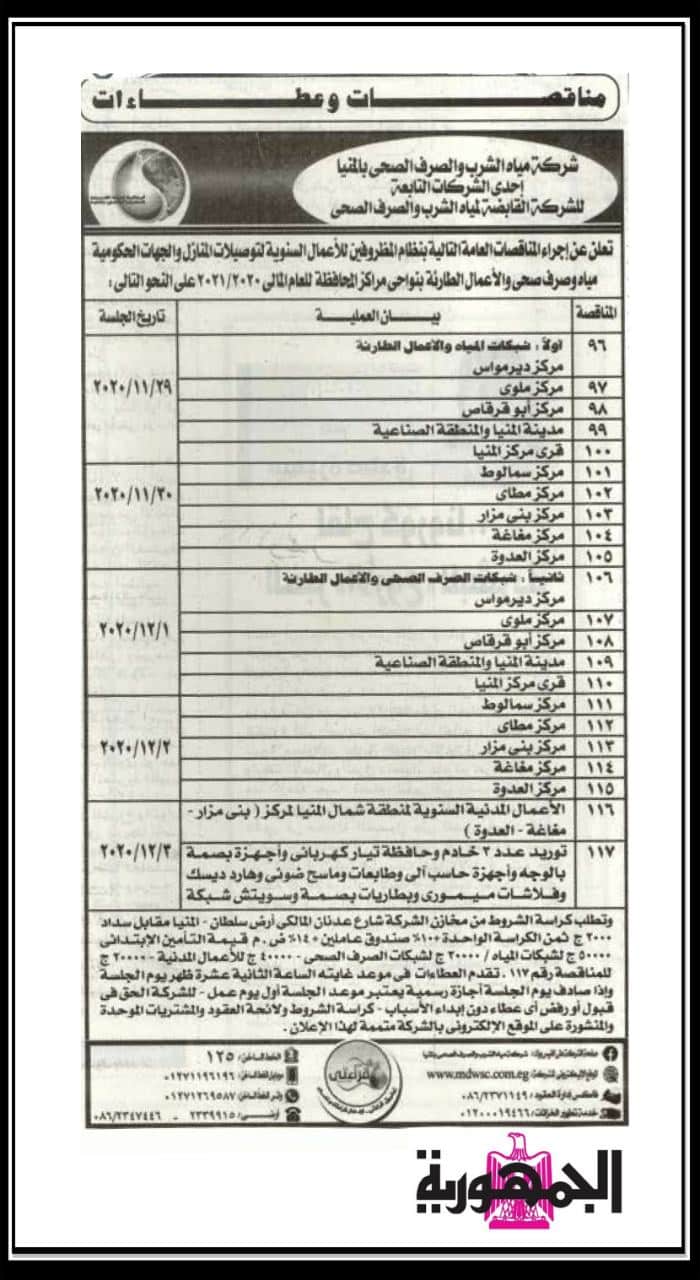 مناقصـــــات وعطـــــاءات
شركة مياه الشرب والصرف الصحى بالمنيا
إحدى الشركات التابعة
للشركة القابضة لمياه الشرب والصرف الصحى
تعلن عن إجراء المناقصات العامة التالية بنظام المظروفين للأعمال السنوية لتوصيلات المنازل والجهات الحكومية
مياه وصرف صحى والأعمال الطارئة بنواحى مراكز المحافظة للعام المالى ٢٠٢١/٢٠٢٠ على النحو التالى :
المناقصة بيــان العمليــة تاريخ الجلسة
٩٦ اولاً : شبكات المياه والأعمال الطارئة
مركز ديرمواس
٩٧ مركز ملوى ٢٠٢٠/١١/٢٩
٩٨ مركز أبو قرقاص
٩٩ مدينة المنيا والمنطقة الصناعية
١٠٠ قرى مركز المنيا
١٠١ مركز سمالوط
١٠٢ مركز مطاى ٢٠٢٠/١١/٣٠
١٠٣ مركز بنى مزار
١٠٤ مركز مغاغة
١٠٥ مركز العدوة
١٠٦ ثانيـاً : شبكات الصرف الصحى والأعمال الطارئة
مركز ديرمواس
١٠٧ مركز ملوى ٢٠٢٠/١٢/١
١٠٨ مركز أبو قرقاص
١٠٩ مدينة المنيا والمنطقة الصناعية
١١٠ قرى مركز المنيا
١١١ مركز سمالوط
١١٢ مركز مطاى
١١٣ مركز بنى مزار ٢٠٢٠/١٢/٢
١١٤ مركز مغاغة
١١٥ مركز العدوة
١١٦ الأعمال المدنية السنوية لمنطقة شمال المنيا لمركز ( بنى مزار -
مغاغة - العدوة )
١١٧ توريد عدد ٢ خادم وحافظة تيار كهربائى وأجهزة بصمة ٢٠٢٠/١٢/٣
بالوجه وأجهزة حاسب آلى وطابعات وماسح ضوئى وهارد ديسك
وفلاشات ميمورى وبطاريات بصمة وسويتش شبكة
وتطلب كراسة الشروط من مخازن الشركة شارع عدنان المالكى أرض سلطان - المنيا مقابل سداد
٢٠٠٠ ج ثمن الكراسة الواحدة +١٠٪ صندوق عاملين +١٤٪ ض . م قيمة التأمين الإبتدائى
٥٠٠٠٠ ج لشبكات المياه / ٢٠٠٠٠ ج لشبكات الصرف الصحى - ٤٠٠٠٠ ج للأعمال المدنية - ٢٠٠٠٠ ج
للمناقصة رقم ١١٧ . تقدم العطاءات فى موعد غايته الساعة الثانية عشرة ظهر يوم الجلسة
وإذا صادف يوم الجلسة أجازة رسمية يعتبر موعد الجلسة أول يوم عمل - للشركة الحق فى
قبول أو رفض أى عطاء دون إبداء الأسباب - كراسة الشروط ولائحة العقود والمشتريات الموحدة
والمنشورة على الموقع الإلكترونى بالشركة متممة لهذا الإعلان .
صفحة الشركة على الفيس بوك : شركة مياه الشرب والصرف الصحى بالمنيا
الموقع الإليكترونى للشركة : www.mdwsc.com.eg
فاكس إدارة العقود : ٠٨٦/٢٣٧١١٤٩
خدمة تطهير الخزانات : ٠١٢٠٠٠١٩٤٦٦
الخط الساخن : ١٢٥
موبايل الخط الساخن : ٠١٢٧١١٩٦١٩٦
واتس الخط الساخن : ٠١٢٧١٢٦٩٥٨٧
أرضى : ٢٣٣٩٩١٥ - ٠٨٦/٢٣٤٧٤٤٦
الجمهورية